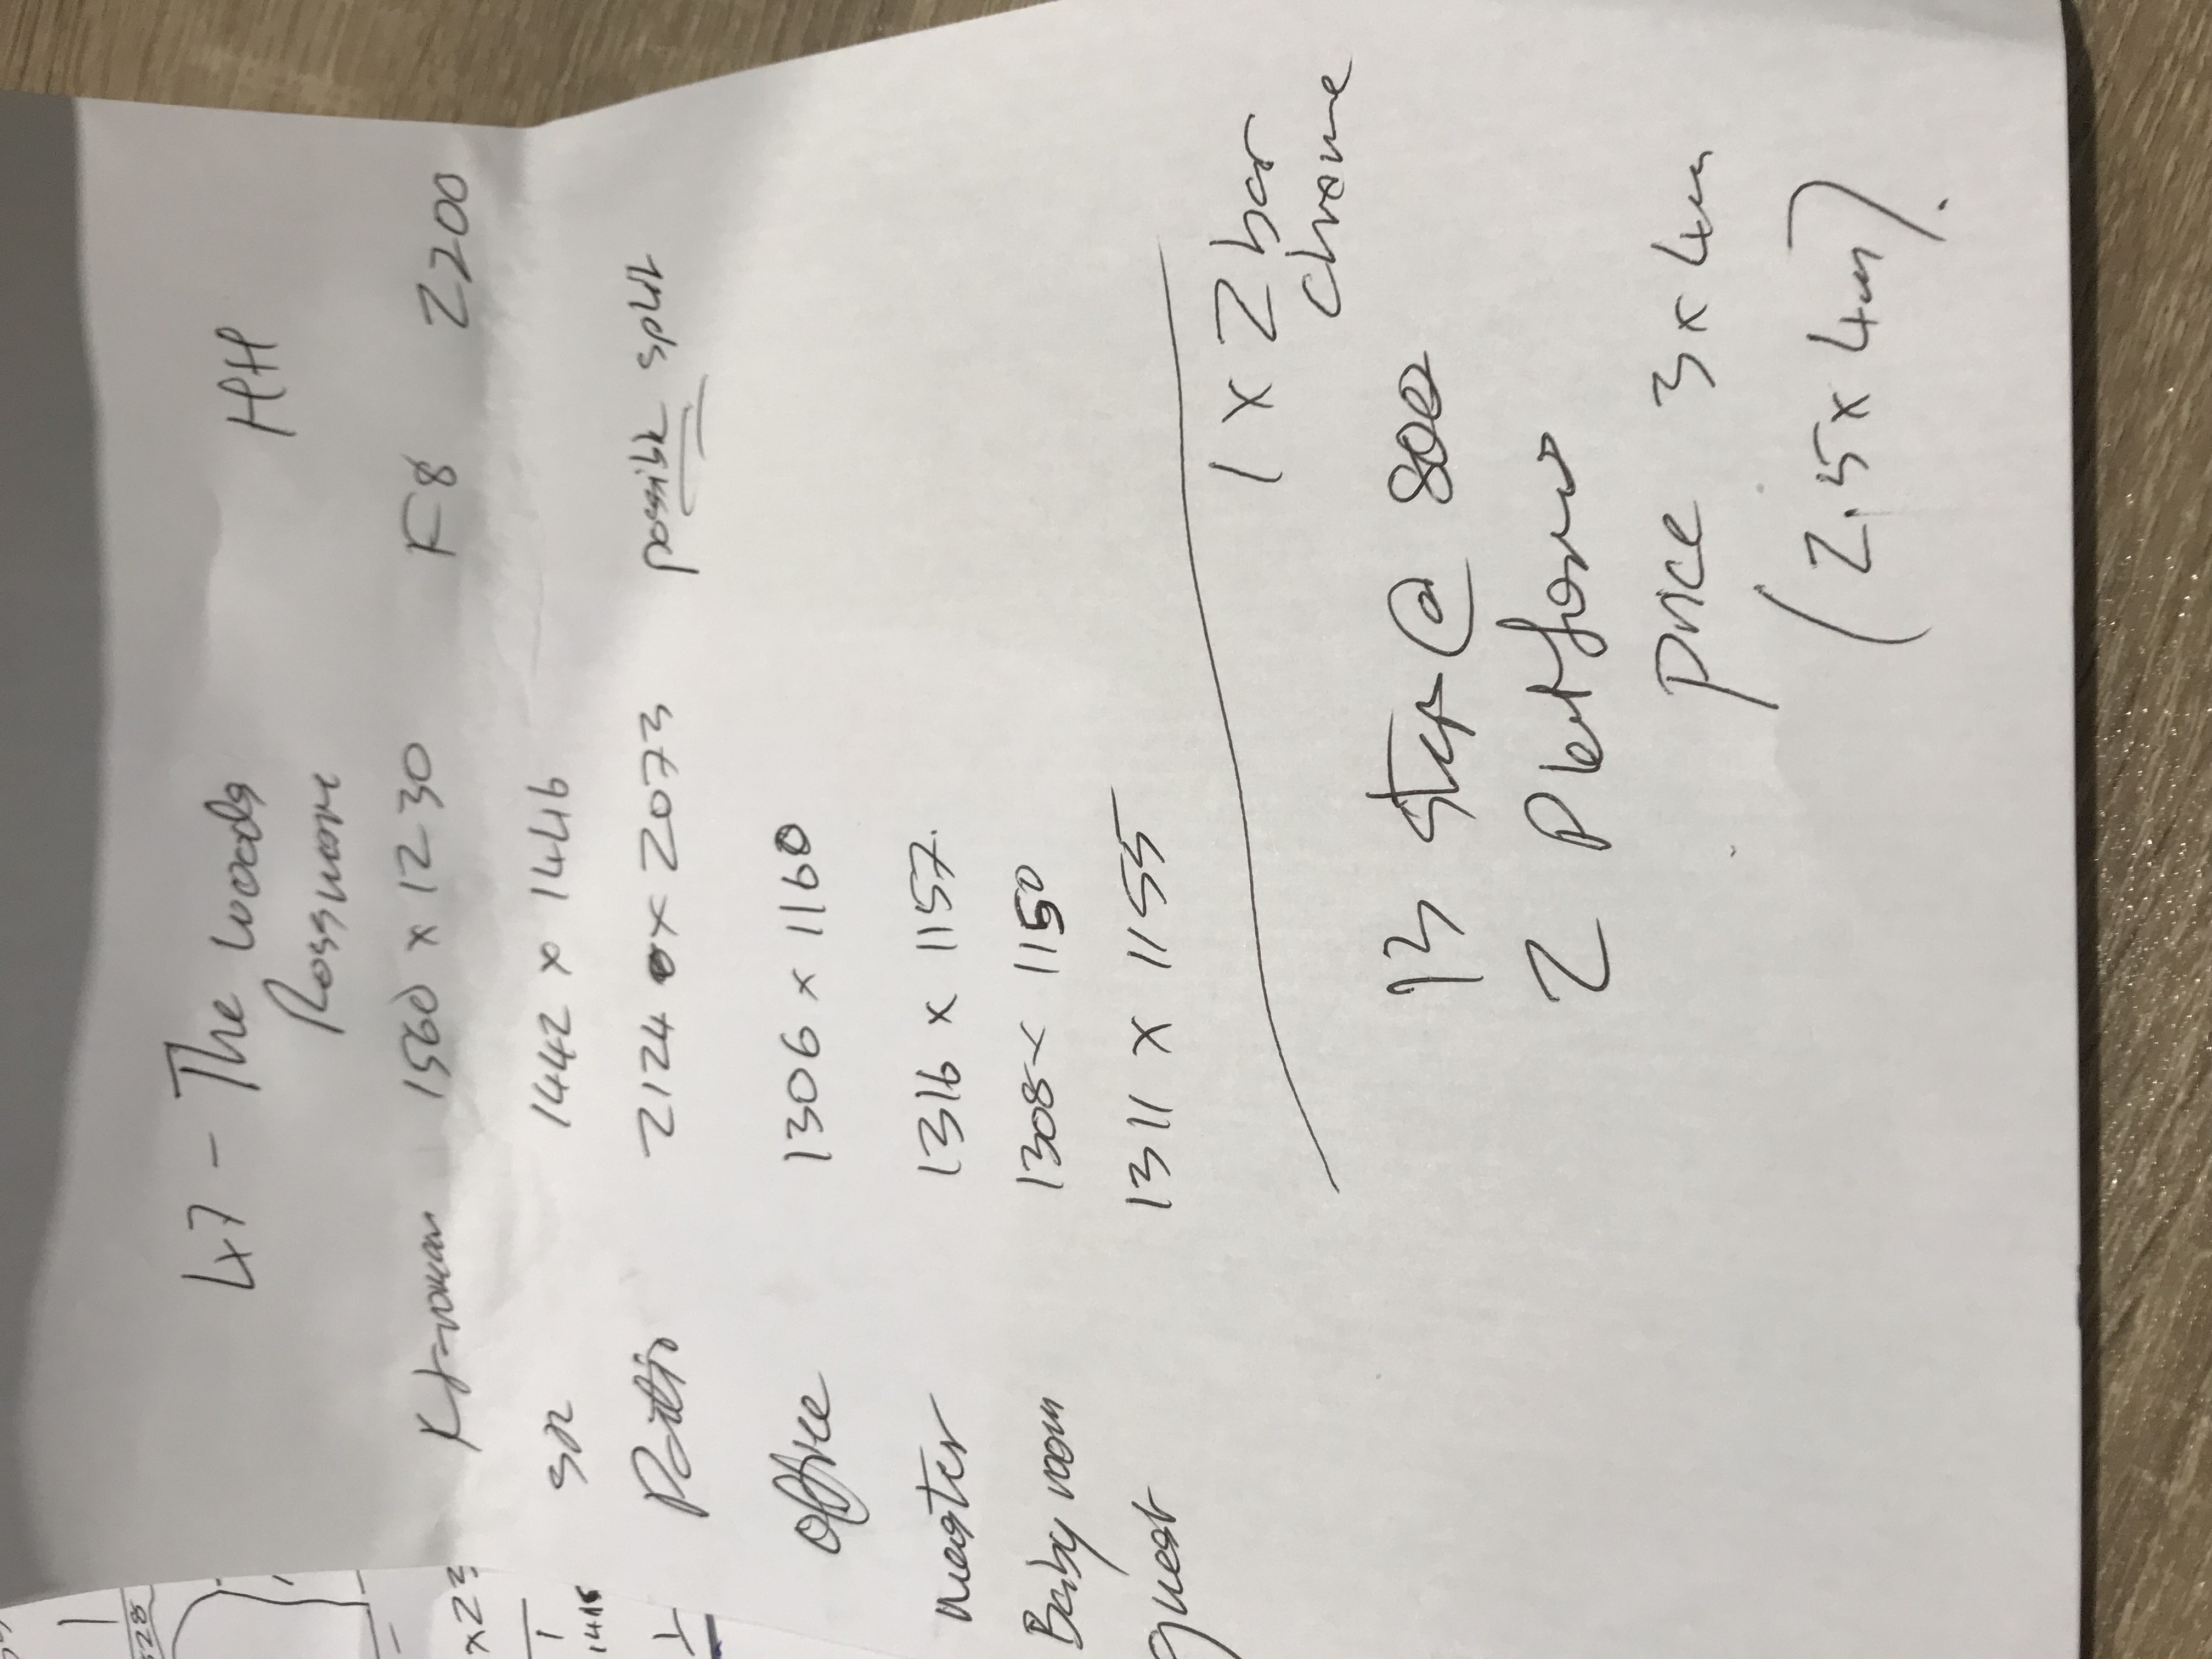 47 - The Woods HH
Rossmore
1560 x 1230 F8 2200
SR 1442 x 1446
Pattio 2124 x 2073 possible split
Office 1306 x 1160
master 1316 x 1157.
Baby room 1308 x 1150
guest 1311 x 1155
1 x 2 bar
chrome
13 step @ 800
2 Platforms
Price 3 x 4m
(2.5 x 4m).
x23
1415
528